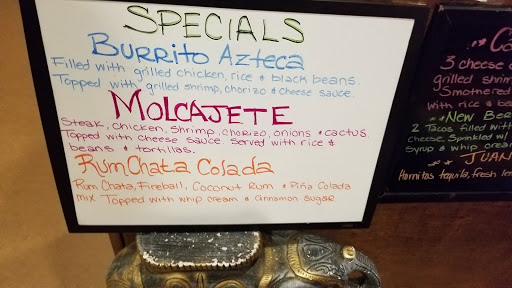 SPECIALS
BURRITO AZTECA
Filled with grilled chicken, rice & black beans.
Topped with grilled shrimp, chorizo & cheese sauce.
MOLCAJETE
Steak, chicken, shrimp, chorizo, onions & cactus.
Topped with cheese sauce. Served with rice &
beans & tortillas.
RumChata Colada
Rum Chata, Fireball, Coconut Rum & Piña Colada
mix Topped with whip cream & cinnamon sugar
3 cheese
grilled shrim
Smothered
with rice & be
NEW
2 Tacos filled with
cheese Sprinkled w/
Syrup & whip cream
JUAN
Hornitos tequila, fresh